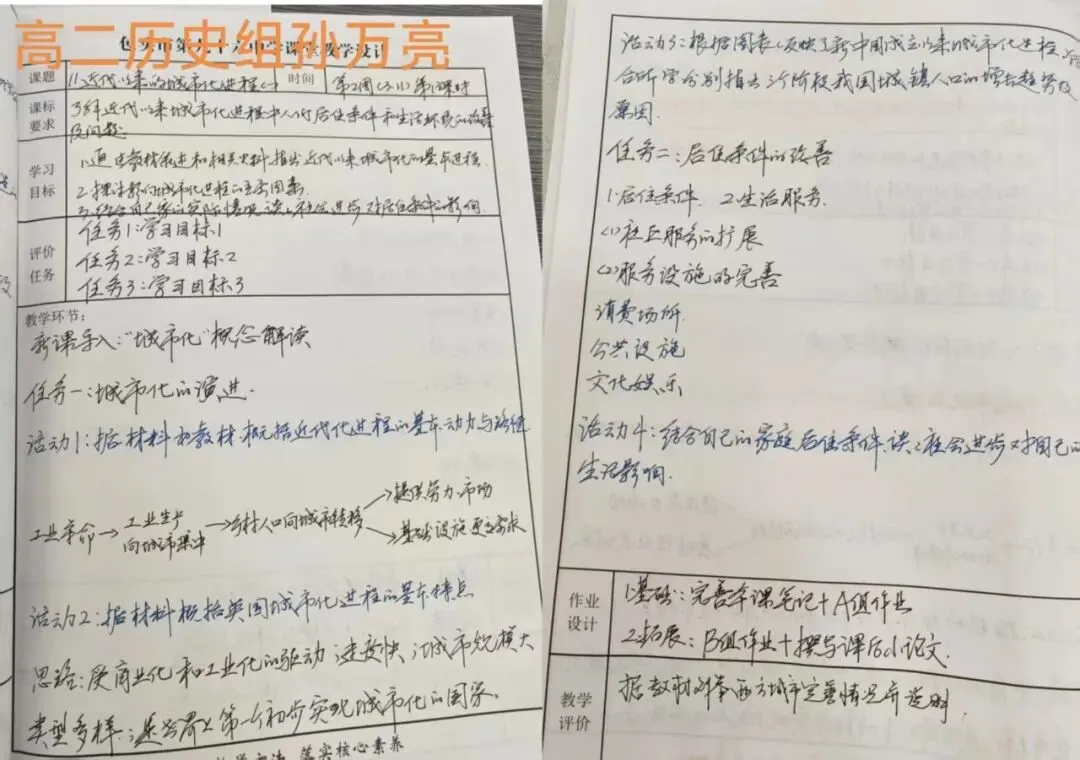 高二历史组孙万亮
课堂教学设计
课题
11近代以来的城市化进程(一)
时间
第2周(3.11)第1课时
课标
要求
了解近代以来城市化进程中人们居住条件和生活环境的改善
及问题
学习
目标
1.通过教材叙述和相关史料,指出近代以来城市化的基本进程.
2.探讨影响城市化进程的主要因素.
3.结合自己家的实际情况,谈谈社会进步对居住条件的影响.
评价
任务
任务1:学习目标1
任务2:学习目标2
任务3:学习目标3
教学环节:
新课导入:"城市化"概念解读
任务一:城市化的演进.
活动1:据材料和教材概括近代化进程的基本动力与路径
工业革命→工业生产
向城市集中
→乡村人口向城市转移
→提供劳力、市场
→基础设施更高要求
活动2:据材料概括英国城市化进程的基本特点
思路:受商业化和工业化的驱动;速度快;城市规模大
类型多样;是世界上第一个初步实现城市化的国家.
落实核心素养
活动3:根据图表(反映了新中国成立以来的城市化进程
合所学分别指出三个阶段我国城镇人口的增长趋势及
原因.
任务二:居住条件的改善
1.居住条件 2.生活服务.
(1)社区服务的扩展
(2)服务设施的完善
消费场所.
公共设施
文化娱乐
活动4:结合自己的家庭居住条件,谈谈社会进步对自己的
生活影响.
作业
设计
1.基础:完善本课笔记+A组作业
2.拓展:B组作业+撰写课后小论文.
教学
评价
据教材列举西方城市完善情况并说明